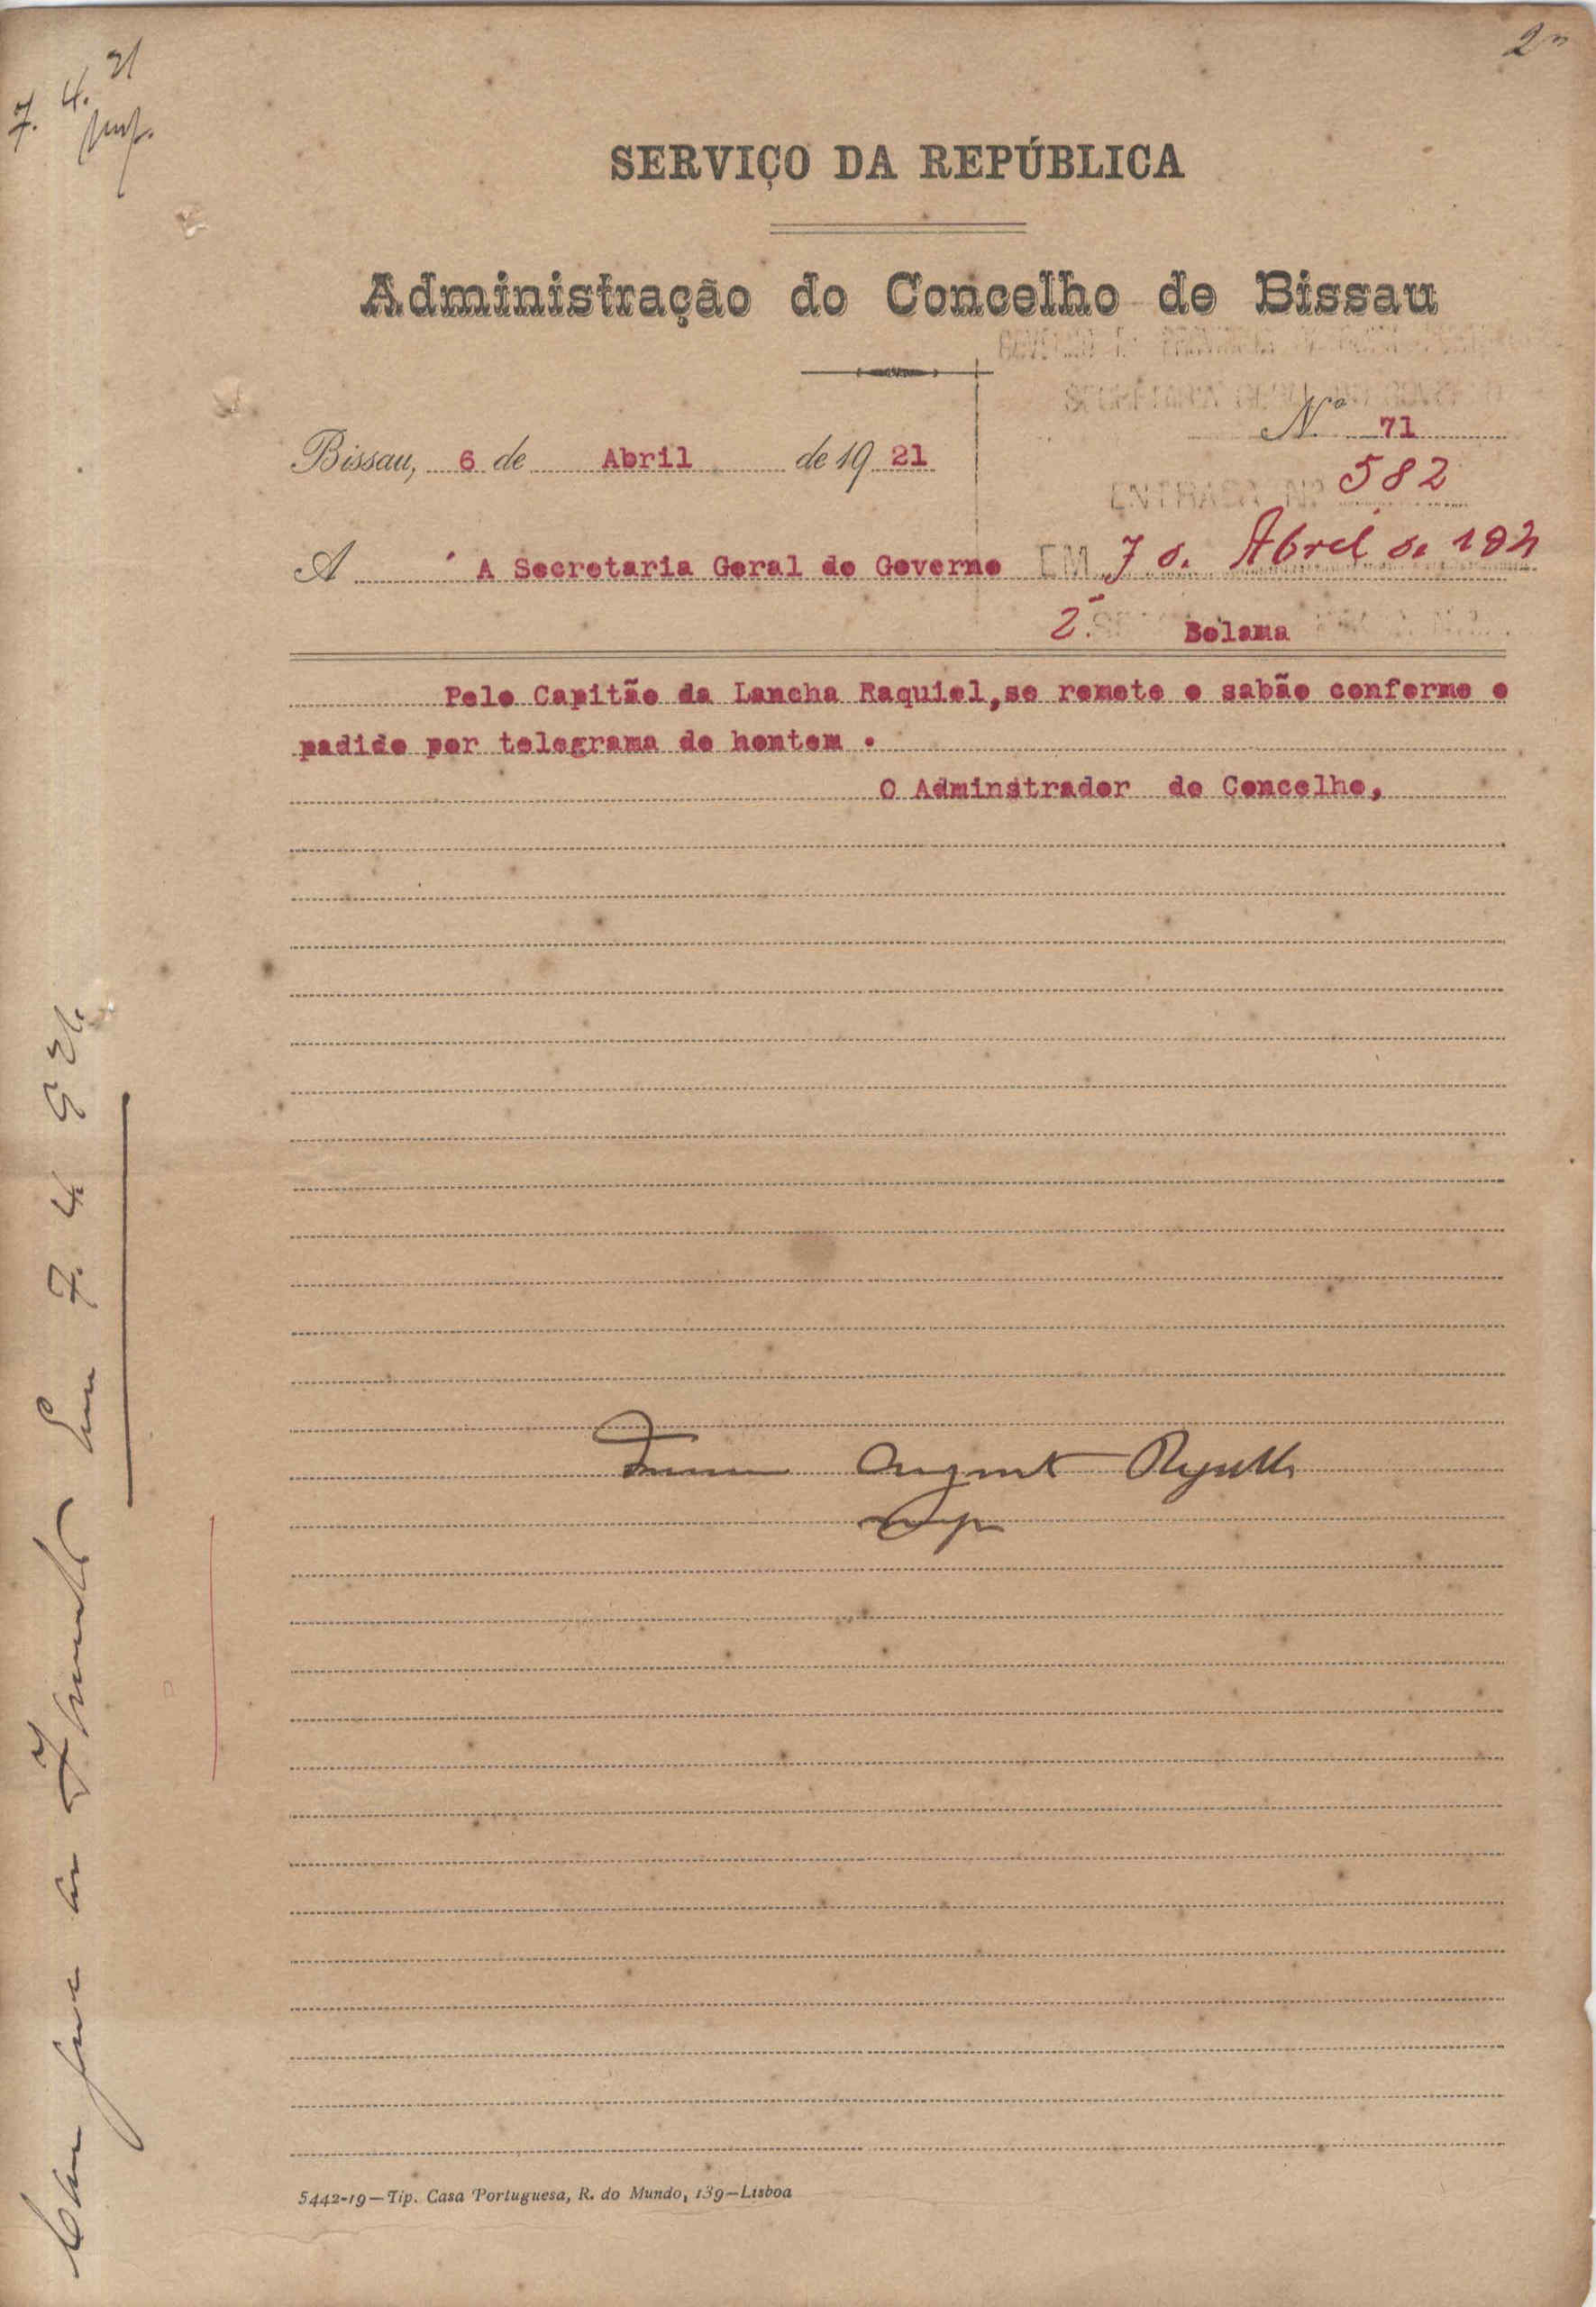 7. 4. 21
SERVIÇO DA REPÚBLICA
Administração do Concelho de Bissau
SECRETARIA GERAL DO GOVERNO
Nº 71
Bissau, 6 de Abril de 1921
ENTRADA Nº 582
A A Secretaria Geral do Governo
EM 7 de Abril de 192
2ª
Bolama
Pelo Capitão da Lancha Raquiel,se remete o sabão conforme o
padido por telegrama de hontem .
O Adminstrador do Concelho,
Em 7. 4. 921.
5442-19—Tip. Casa Portuguesa, R. do Mundo, 139—Lisboa